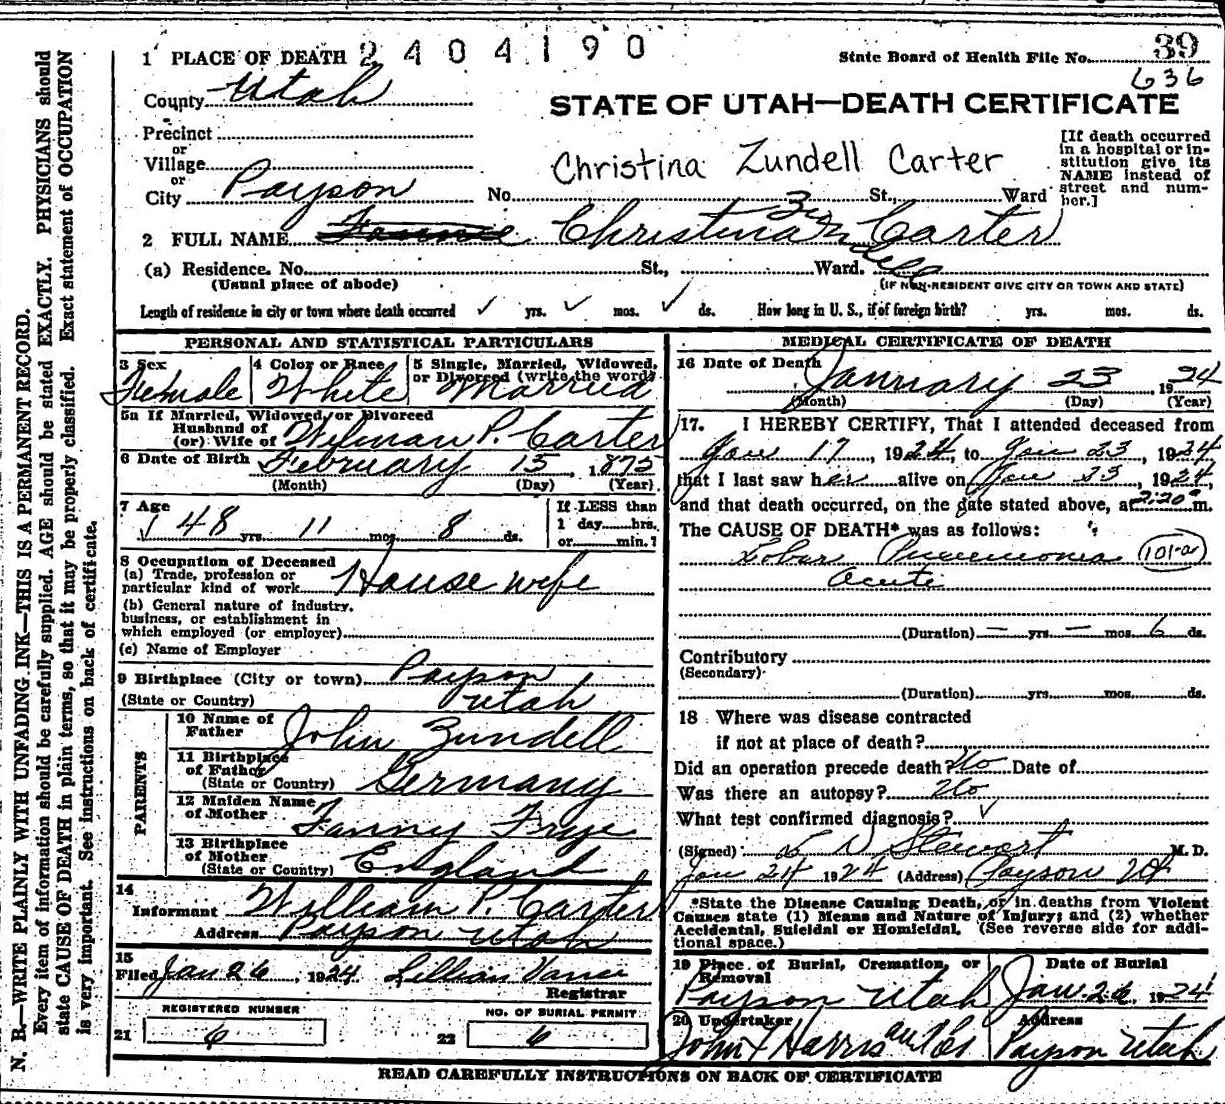 N. B.—WRITE PLAINLY WITH UNFADING INK—THIS IS A PERMANENT RECORD.
Every item of information should be carefully supplied. AGE should be stated EXACTLY. PHYSICIANS should
state CAUSE OF DEATH in plain terms, so that it may be properly classified. Exact statement of OCCUPATION
is very important. See instructions on back of certificate.
1 PLACE OF DEATH 2404190
State Board of Health File No. 39
636
County Utah
STATE OF UTAH—DEATH CERTIFICATE
Precinct
or
Village
or
City Payson
Christina Zundell Carter
No. St., Ward
[If death occurred
in a hospital or in-
stitution give its
NAME instead of
street and num-
ber.]
2 FULL NAME Christina Zundell Carter
(a) Residence. No. St., Ward.
(Usual place of abode)
(IF NON-RESIDENT GIVE CITY OR TOWN AND STATE)
Length of residence in city or town where death occurred ✓ yrs. ✓ mos. ✓ ds. How long in U. S., if of foreign birth? yrs. mos. ds.
PERSONAL AND STATISTICAL PARTICULARS
3 Sex
Female
4 Color or Race
White
5 Single, Married, Widowed,
or Divorced (write the word)
Married
5a If Married, Widowed, or Divorced
Husband of
(or) Wife of Wilman P. Carter
6 Date of Birth February 15, 1875
(Month) (Day) (Year)
7 Age
48 yrs. 11 mos. 8 ds.
If LESS than
1 day hrs.
or min.?
8 Occupation of Deceased
(a) Trade, profession or
particular kind of work House wife
(b) General nature of industry,
business, or establishment in
which employed (or employer)
(c) Name of Employer
9 Birthplace (City or town) Payson
(State or Country) Utah
PARENTS
10 Name of
Father John Zundell
11 Birthplace
of Father
(State or Country) Germany
12 Maiden Name
of Mother Fanny Frye
13 Birthplace
of Mother
(State or Country) England
14
Informant William P. Carter
Address Payson Utah
15
Filed Jan 26, 1924 Lillian Vance
Registrar
REGISTERED NUMBER
21 6
NO. OF BURIAL PERMIT
22 6
MEDICAL CERTIFICATE OF DEATH
16 Date of Death
January 23 1924
(Month) (Day) (Year)
17. I HEREBY CERTIFY, That I attended deceased from
Jan 17, 1924, to Jan 23, 1924
that I last saw her alive on Jan 23, 1924,
and that death occurred, on the date stated above, at 2:20 a m.
The CAUSE OF DEATH* was as follows:
Lobar Pneumonia 101-a
acute
(Duration) — yrs. — mos. 6 ds.
Contributory
(Secondary)
(Duration) yrs. mos. ds.
18 Where was disease contracted
if not at place of death?
Did an operation precede death? No Date of
Was there an autopsy? No
What test confirmed diagnosis? ✓
(Signed) Stewart M. D.
Jan 24 1924 (Address) Payson Ut
*State the Disease Causing Death, or in deaths from Violent
Causes state (1) Means and Nature of Injury; and (2) whether
Accidental, Suicidal or Homicidal. (See reverse side for addi-
tional space.)
19 Place of Burial, Cremation, or
Removal
Payson Utah
Date of Burial
Jan. 26, 1924
20 Undertaker
John Harris and Co
Address
Payson Utah
READ CAREFULLY INSTRUCTIONS ON BACK OF CERTIFICATE